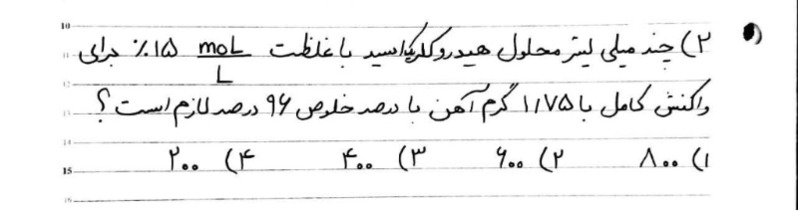 ۱۰
۲) چند میلی لیتر محلول هیدروکلریک اسید با غلظت mol/L ۰/۱۵ برای
۱۱
۱۲
واکنش کامل با ۱/۱۷۵ گرم آهن با درصد خلوص ۹۶ درصد لازم است؟
۱۳
۱۴
۱) ۸۰۰ ۲) ۶۰۰ ۳) ۴۰۰ ۴) ۲۰۰
۱۵